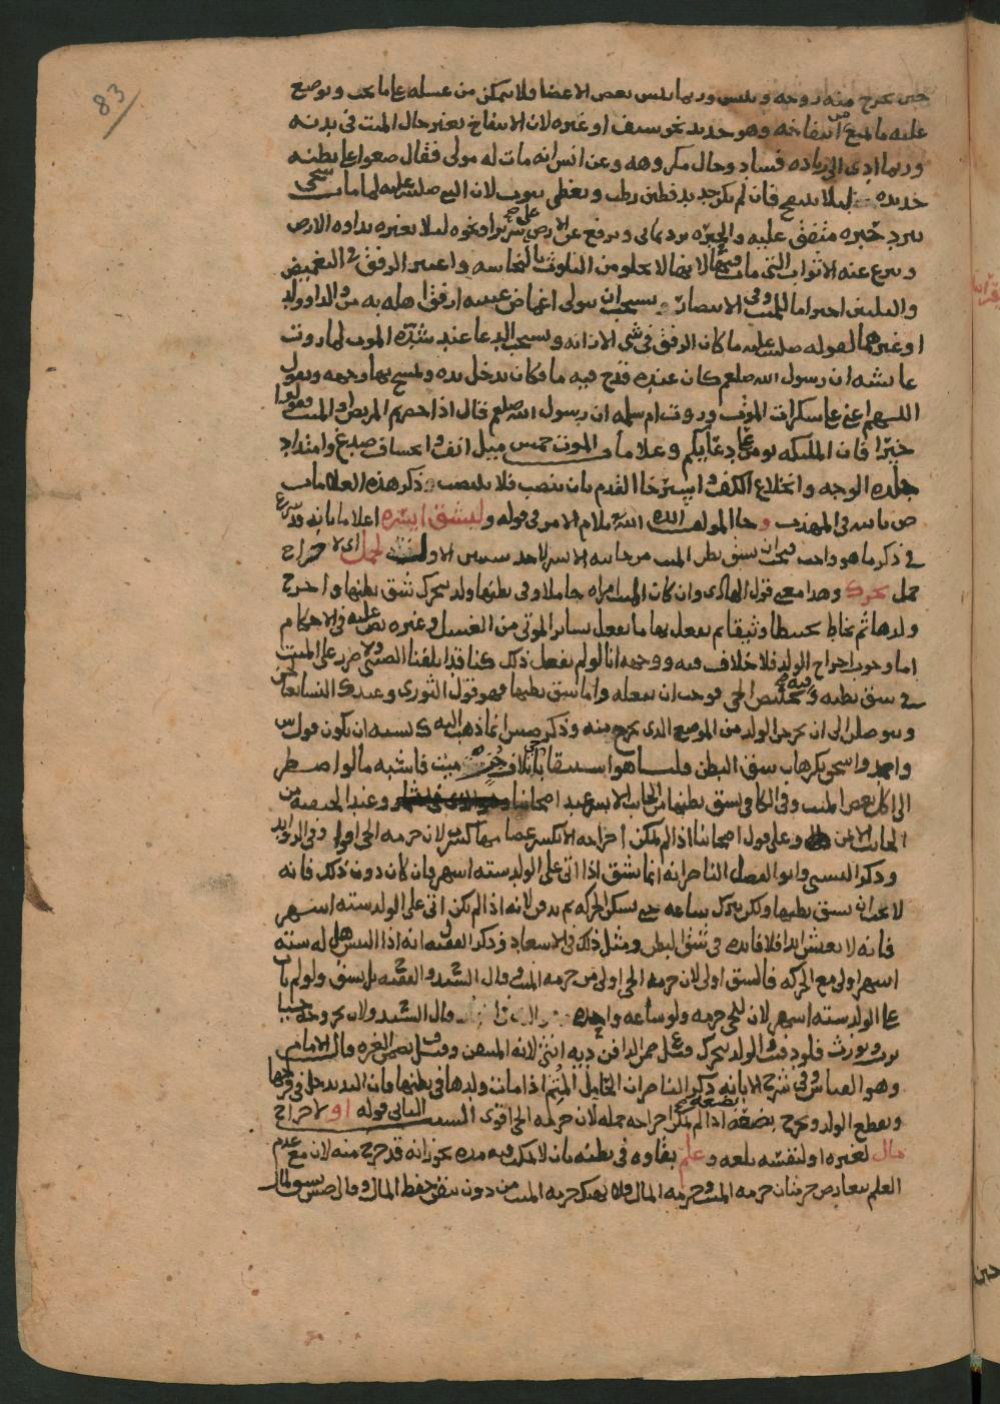 83
حين يخرج منه روحه ويلين وربما يلبس بعض الاعضا فلا يمكن من غسله على ما يجب ويوضع
عليه ما يمنع من انتفاخه وهو حديد نحو سيف او غيره لان الانتفاخ تغير حال الميت في بدنه
وربما ادى الى زياده فساد وحال مكروهه وعن انس انه مات له مولى فقال ضعوا على بطنه
حديده ليلا ينتفخ فان لم يكن حديد فطين رطب ويغطى بثوب لان النبي صلى الله عليه لما مات سجي
ببرد حبره متفق عليه والحبره برد يماني ويرفع عن الارض على سرير او نحوه ليلا تغيره نداوه الارض
وينزع عنه الاثواب التي مات فيها لانها لا تخلو من التلوث بالنجاسه واعتبر الرفق في التغميض
والتليين احتراما للميت وفي الانتصار يستحب ان يتولى اغماض عينيه ارفق اهله به من والد او ولد
او غيرهما لقوله صلى الله عليه ما كان الرفق في شي الا زانه ويستحب الدعا عند شده الموت لما روت
عائشه ان رسول الله صلعم كان عنده قدح فيه ما فكان يدخل يده ويمسح بها وجهه ويقول
اللهم اعني على سكرات الموت وروت ام سلمه ان رسول الله صلعم قال اذا حضرتم المريض او الميت فقولوا
خيرا فان الملئكه يومنون على دعائكم وعلامات الموت خمس ميل انف وانخساف صدغ وامتداد
جلده الوجه وانخلاع الكف واسترخا القدم بان ينصب فلا ينتصب وذكر هذه العلامات
ص بالله في المهذب وجا المولف ايده الله بلام الامر في قوله وليشق ايسره اعلاما بانه قد شرع
في ذكر ما هو واجب فيجب ان يشق بطن الميت من جانبه الايسر لاحد سببين الاول لحمل اي لاخراج
حمل تحرك وهذا معنى قول الهادي وان كان الميت امراه حاملا وفي بطنها ولد يتحرك شق بطنها واخرج
ولدها ثم يخاط تخييطا وثيقا ثم يفعل بها ما يفعل بسائر الموتى من الغسل وغيره نص عليه في الاحكام
اما وجوب اخراج الولد فلا خلاف فيه ووجهه انا لو لم نفعل ذلك كنا قد اتلفنا الصبي ولا ضرر على الميت
في شق بطنه وفيه تخليص الحي فوجب ان نفعله واما شق بطنها فهو قول الثوري وعند ك النسا تعالجن
ويتوصلن الى ان يخرجن الولد من الموضع الذي يخرج منه وذكر ص ش ان ما ذهب اليه ك يشبه ان يكون قول س
واحمد واسحق بكراهه شق البطن قلنا هو استبقا حي باتلاف جز ميت فاشبه ما لو اضطر
الى اكل بعض الميت وفي الكافي يشق بطنها من الجانب الايسر عند اصحابنا وعند الحنفيه من
الجانب الايمن وعلى قول اصحابنا اذا لم يمكن اخراجه الا بكسر عضا منها كسر لان حرمه الحي اولى وفي الزوايد
وذكر الحسيني وابو الفضل الناصر انه انما يشق اذا اتى على الولد سته اشهر فان كان دون ذلك فانه
لا يجب ان يشق بطنها ولكن يترك ساعه حتى تسكن الحركه ثم يدفن لانه اذا لم يكن اتى على الولد سته اشهر
فانه لا يعيش ابدا فلا فائده في شق البطن ومثل ذلك في الاسعاد وذكر الفقيه ل انه اذا التبس هل له سته
اشهر او لا مع الحركه فالشق اولى لان حرمه الحي اولى من حرمه الميت وقال السيد والفقيه بل يشق ولو لم يات
على الولد سته اشهر لان للحي حرمه ولو ساعه واحده وقال السيد ولان بخروجه حيا
يرث ويورث فلو دفنت والولد يتحرك فعلى من الدافن ديه انثى لانه المتيقن وقيل يضمن الغره وقال الامام
وهو العباس وفي شرح الابانه ذكر الناصر ان الحامل المتيم اذا مات ولدها في بطنها فان اليد تدخل في فرجها
ويقطع الولد ويخرج بضعه بضعه اذا لم يمكن اخراجه جمله لان حرمه الحي اقوى السبب الثاني قوله او لاخراج
مال لغيره او لنفسه بلعه وعلم بقاوه في بطنه بان لا يمكث فيه مده يجوز انه قد خرج منه لان مع عدم
العلم تعارض حرمتان حرمه الميت وحرمه المال ولا تهتك حرمه الميت من دون تيقن حفظ المال وقال ص ش سوا المال